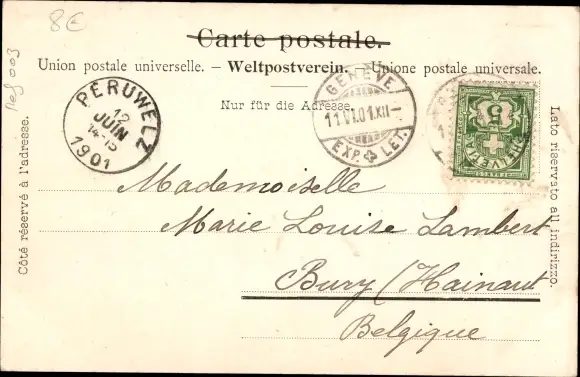 8€
Carte postale.
Union postale universelle. – Weltpostverein. – Unione postale universale.
Nur für die Adresse.
PERUWELZ
12
JUIN
14-15
1901
GENÈVE
11.VI.01.XII–
EXP. LET.
5
HELVETIA
Côté réservé à l'adresse.
Lato riservato all' indirizzo.
Mademoiselle
Marie Louise Lambert
Bury (Hainaut
Belgique